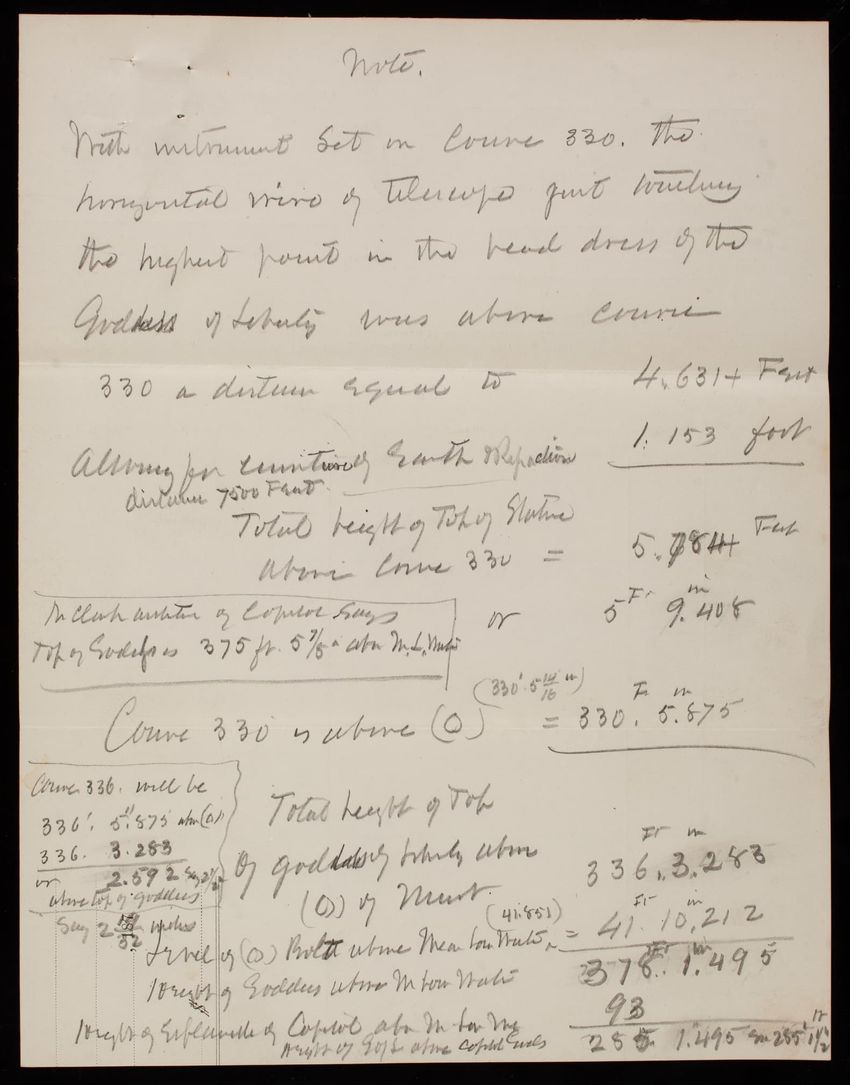 Note.
With instrument Set on Course 330. the
horizontal wire of telescope just touching
the highest point in the head dress of the
Goddess of Liberty was above course
330 a distance equal to 4.631+ Feet
Allowing for curvature of Earth & Refraction 1.153 foot
distance 7500 Feet.
Total height of Top of Statue
above Course 330 = 5.784+ Feet
or 5 Ft 9.408 in
Mr Clark architect of Capitol Says
Top of Goddess is 375 ft. 5 7/8 in abv M. L. Water
Course 330 is above (O) (330' 5 14/16 in) = 330 Ft 5.875 in
Course 336. will be
336'. 5".875 abv (O)
336. 3.283
or 2.592 Say 2 1/2"
above top of goddess
Say 2 19/32 inches
Total height of Top
of goddess of Liberty above
(O) of Mont. 336 Ft 3.283 in
Level of (O) Bolt above Mean Low Water (41.851) = 41 Ft 10.212 in
Height of Goddess above M Low Water 378 Ft 1.495 in
Height of Esplanade of Capitol abv M Low 93
Height of above Capitol 285 1.495 Say 285' 1 1/2"